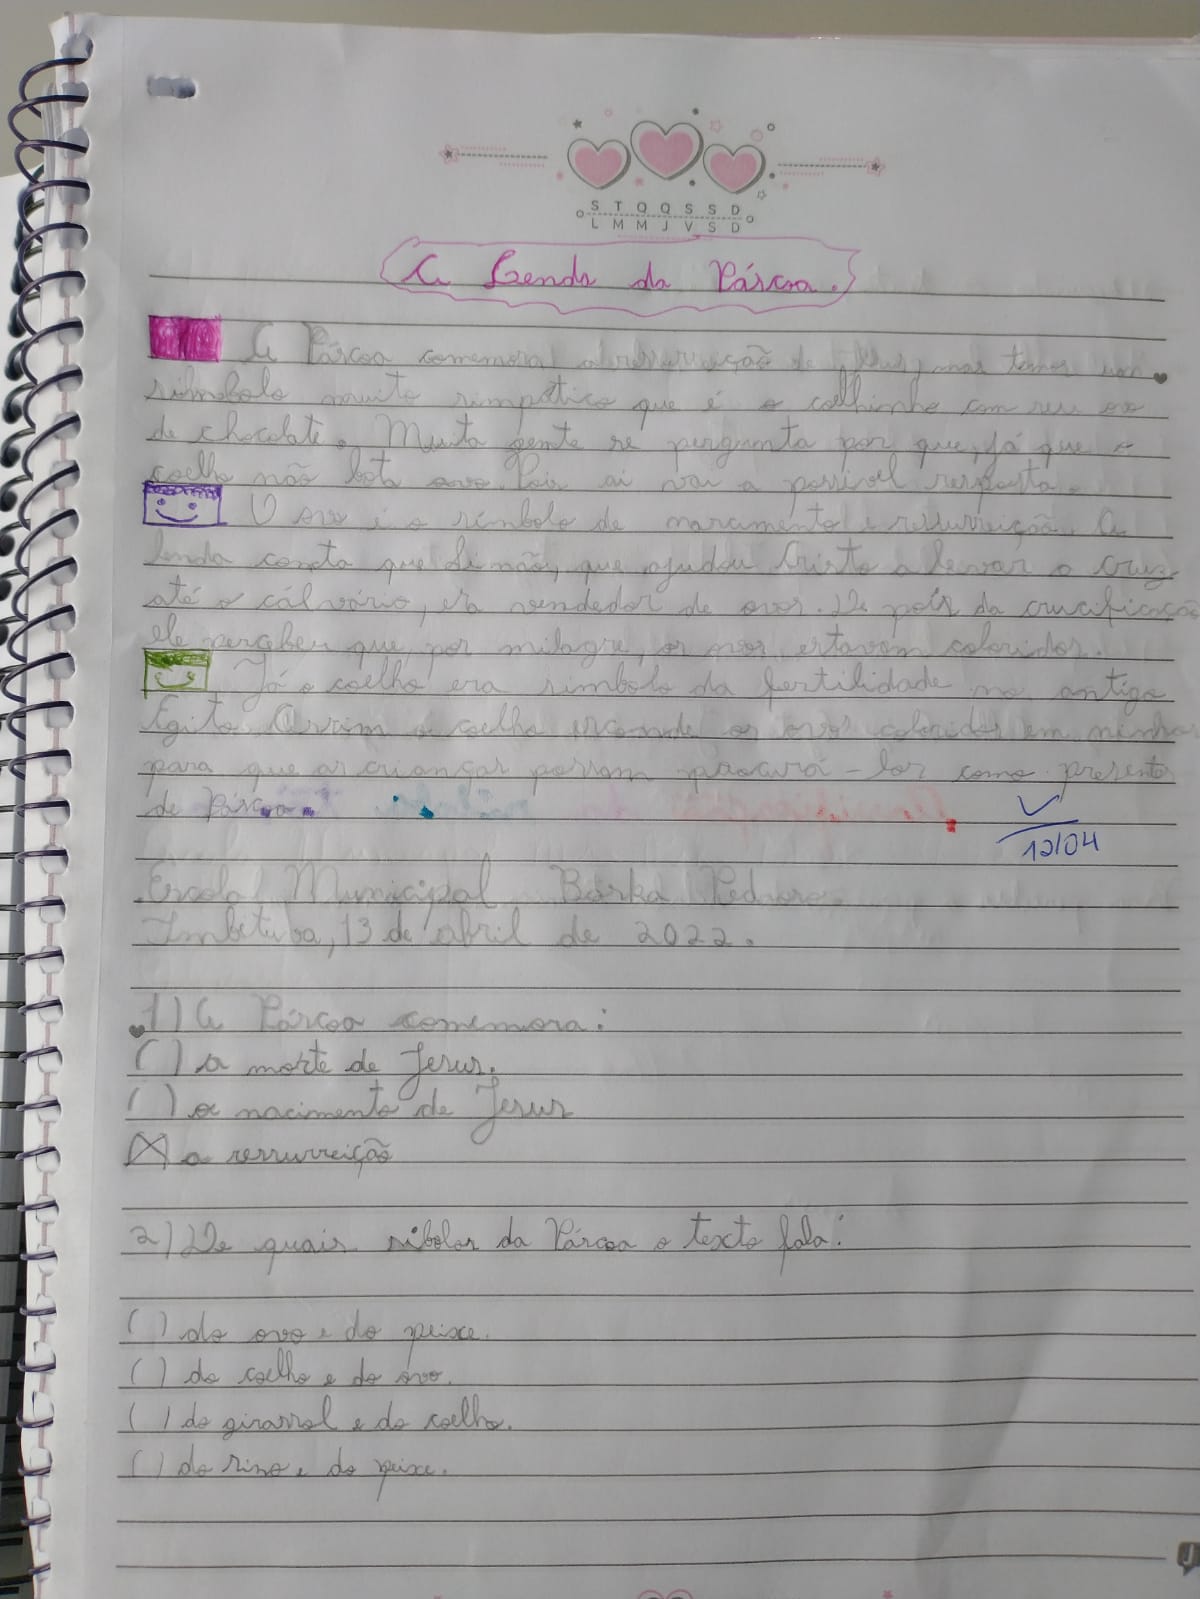 S T Q Q S S D
L M M J V S D
A Lenda da Páscoa.
A Páscoa comemora a ressurreição de Jesus, mas temos um
símbolo muito simpático que é o coelhinho com seu ovo
de chocolate. Muita gente se pergunta por que, já que o
coelho não bota ovo. Pois ai vai a possível resposta.
O ovo é o símbolo de nascimento e ressurreição. A
lenda conta que Simão, que ajudou Cristo a levar a cruz
até o cálvário, era vendedor de ovos. De pois da crucificação
ele percebeu que, por milagre, os ovos estavam coloridos.
Já o coelho era símbolo da fertilidade no antigo
Egito. Assim o coelho esconde os ovos coloridos em ninhos
para que as crianças possam procurá-los como presente
de Páscoa.
12/04
Escola Municipal Básica
Imbituba, 13 de abril de 2022.
1) A Páscoa comemora:
( ) a morte de Jesus.
( ) o nacimento de Jesus
(X) a ressurreição
2) De quais sibolos da Páscoa o texto fala:
( ) do ovo e do peixe.
( ) do coelho e do ovo.
( ) do girassol e do coelho.
( ) do sino e do peixe.